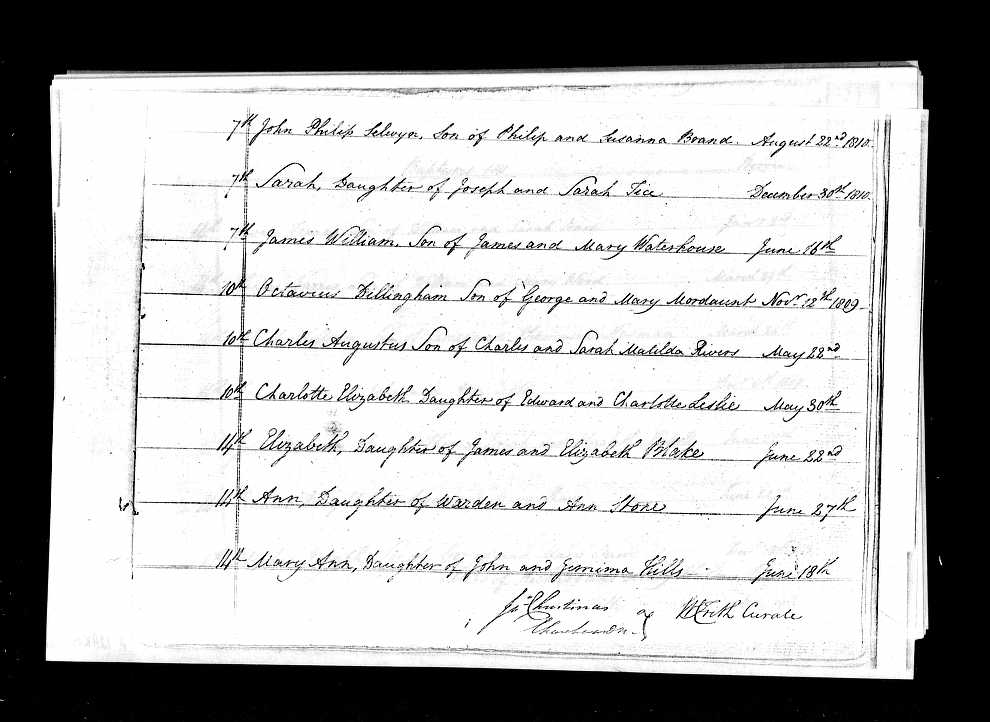 7th John Philip Selwyn, Son of Philip and Susanna Brand. August 22nd 1810.
7th Sarah, Daughter of Joseph and Sarah Tice December 30th 1810.
7th James William, Son of James and Mary Waterhouse June 16th
10th Octavius Dillingham Son of George and Mary Mordaunt Novr. 12th 1809.
10th Charles Augustus Son of Charles and Sarah Matilda Rivers May 22nd
10th Charlotte Elizabeth Daughter of Edward and Charlotte Leslie May 30th
14th Elizabeth, Daughter of James and Elizabeth Blake June 22nd
14th Ann, Daughter of Warden and Ann Stone June 27th
14th Mary Ann, Daughter of John and Jemima Hills June 18th
Curate